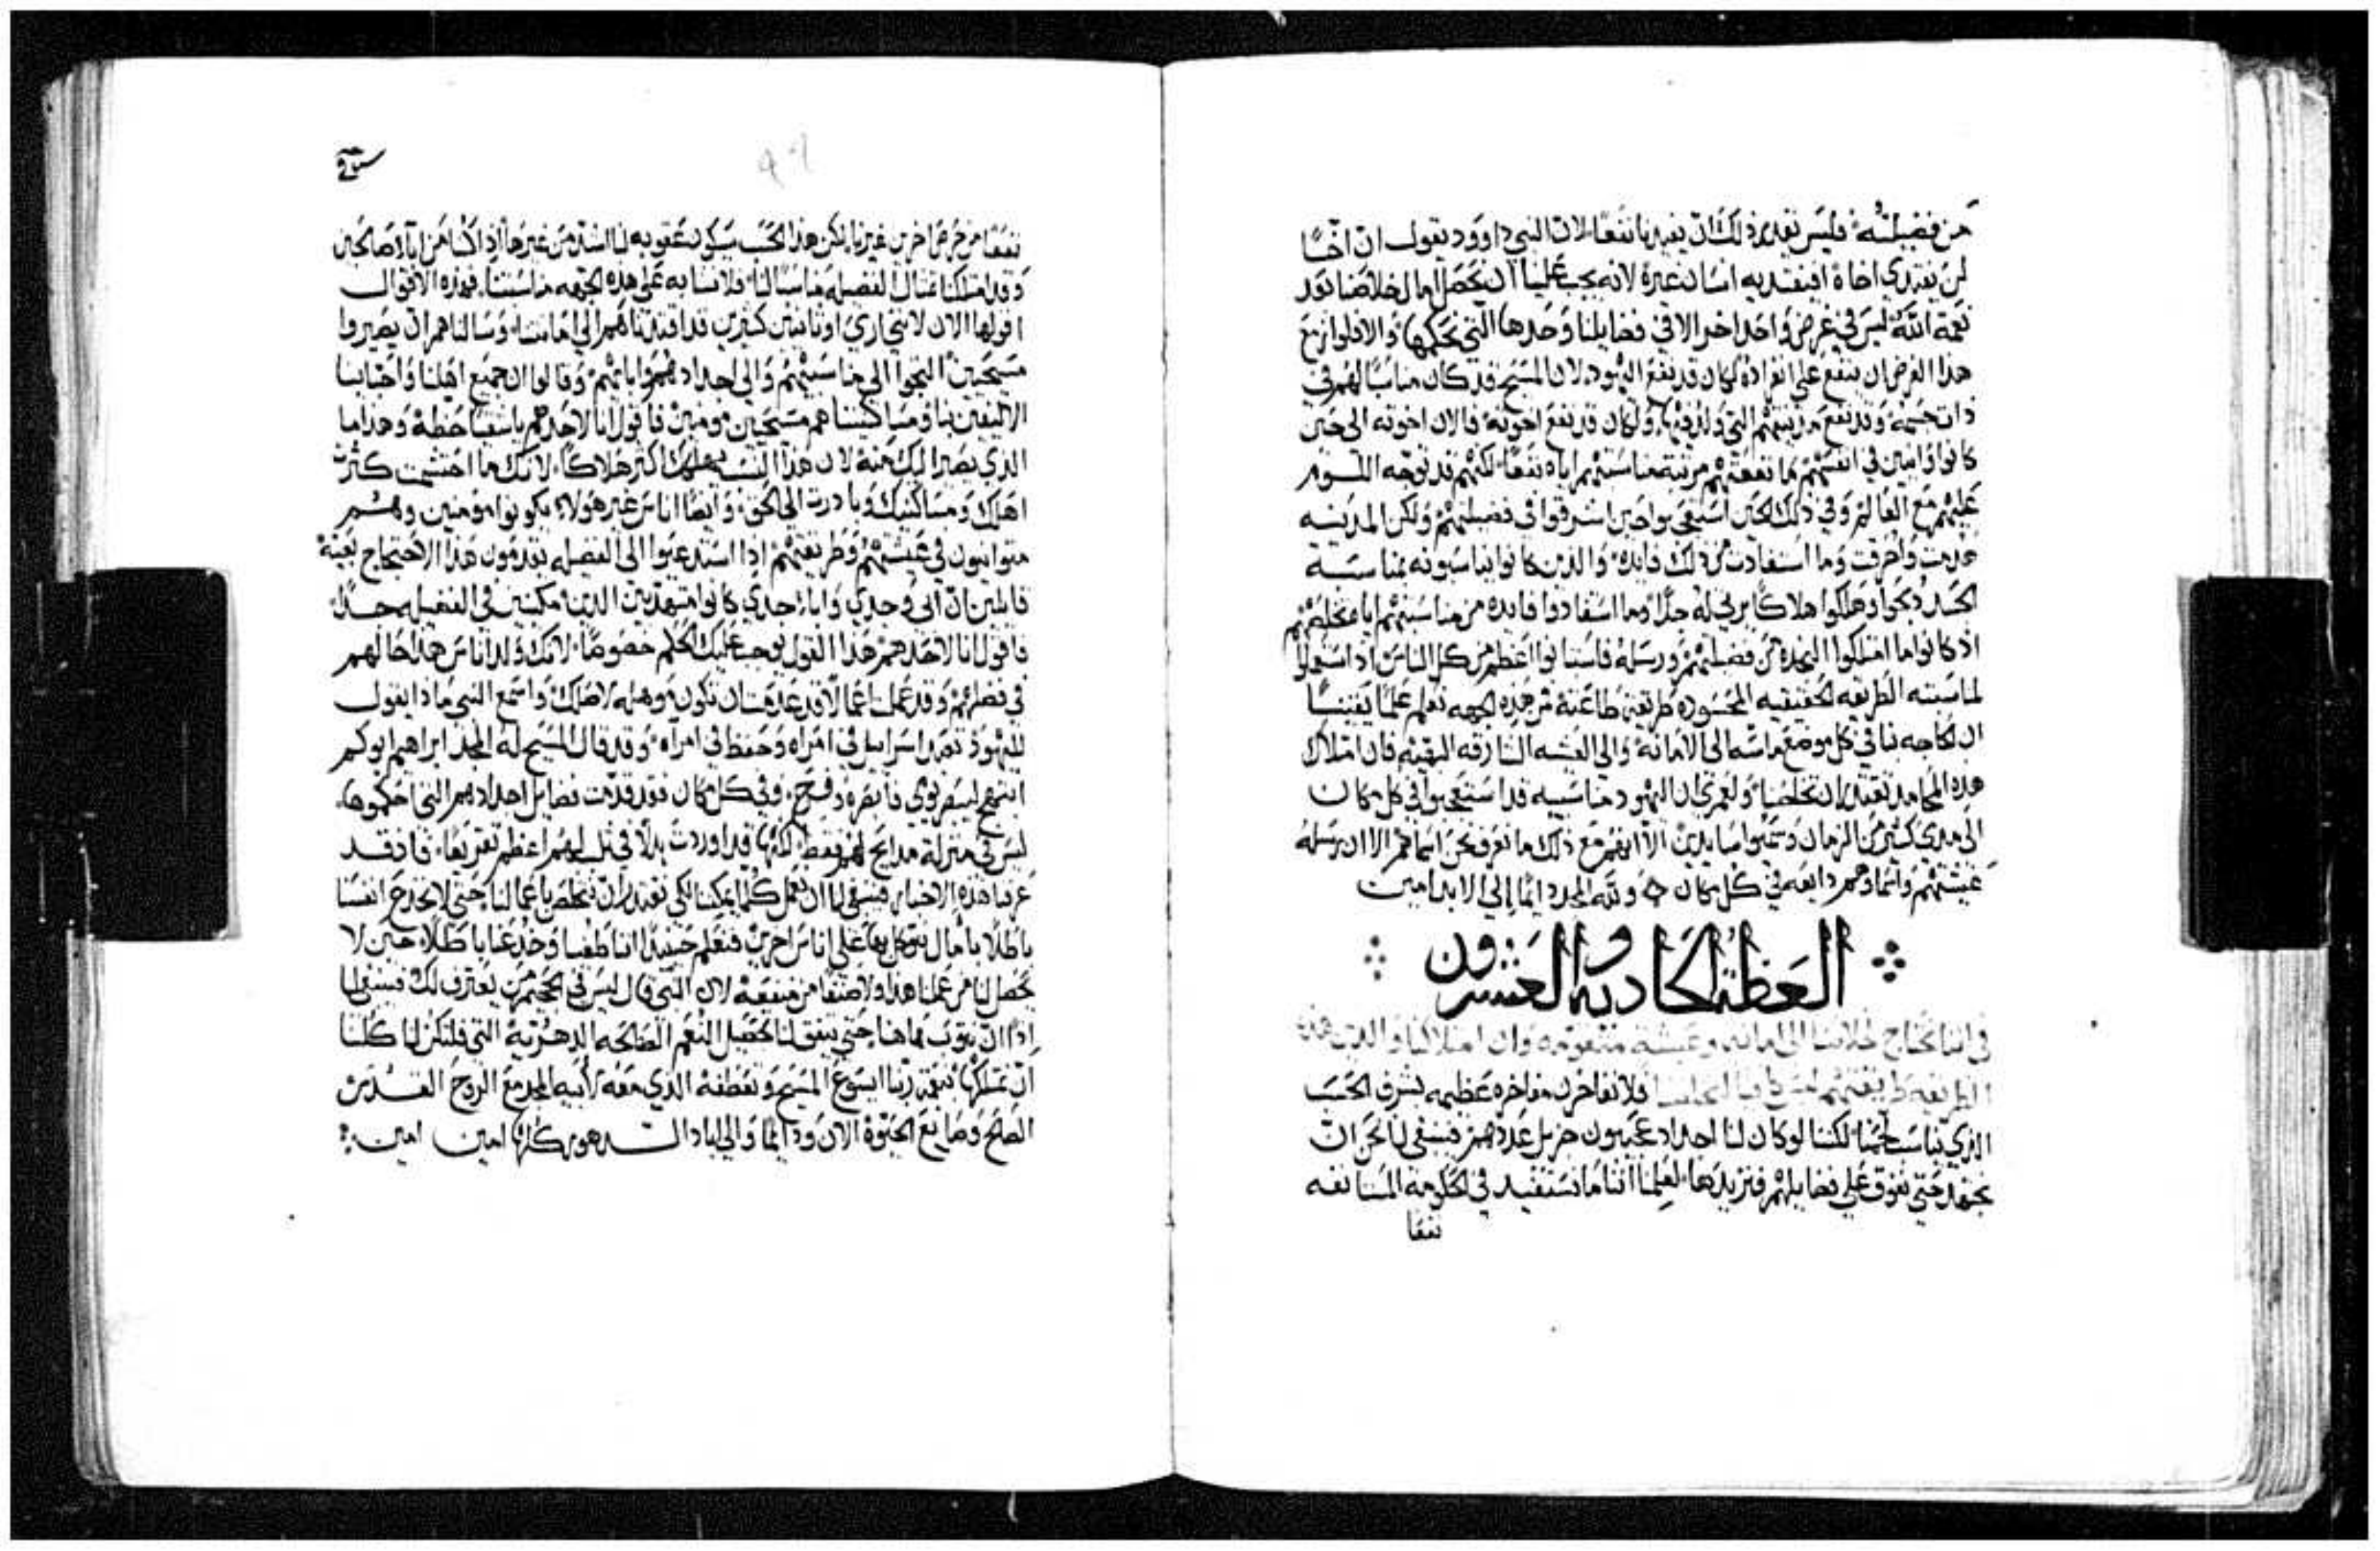 من فضيلته فليس نقدر ذلك ان يفيدنا نفعا لان النبي داوود يقول ان اخًا
لن يفتدي اخاه افيفتديه انسان غيره لانه يجب علينا ان نحصل امال خلاصنا بعد
نعمة الله ليس في غرض واحد اخر الا في فضايلنا وحدها التي نحكمها والا فلو ازمع
هذا الغرض ان ينفع على انفراده لكان قد نفع اليهود لان المسيح قد كان مناسبًا لهم في
ذات جسمه وقد نفع مدينتهم التي ولد فيها ولكان قد نفع اخوته فالان اخوته الى حين
كانوا وانيين في انفسهم ما نفعتهم مرتبة مناسبتهم اياه نفعا لكنهم قد توجه اللوم
عليهم مع العالم وفي ذلك الحين استعجبوا حين اشرقوا في فضيلتهم ولكن المدينه
هدمت واحرقت وما استفادت من ذلك فايده والذين كانوا يناسبونه بمناسبة
الجسد ذبحوا وهلكوا هلاكًا يرثى له جدًا وما استفادوا فايده من مناسبتهم اياه تخلصهم
اذ كانوا ما امتلكوا النجده من فضيلتهم ورسله فاستبانوا اعظم من كل الناس اذ استعملوا
لمناسبته الطريقه الحقيقيه المحسوده طريقة طاعته من هذه الجهه نعلم علمًا يقينًا
ان الحاجه بنا في كل موضع ماسه الى الامانة والى العيشه الشارقه البهية فان امتلاك
هذه المحامد تقتدر ان تخلصنا ولعمري ان اليهود مناسبيه قد استعجبوا في كل مكان
الى مدى كثير من الزمان وسموا سايدين الا اننا مع ذلك ما نعرف نحن اسماهم الا ان رسله
عيشتهم واسماوهم دايعه في كل مكان ولله المجد دايمًا الى الابد امين
العظة الحادية والعشرون
في اننا نحتاج لخلاصنا الى امانه وعيشة متقومه وان امتلاكنا والدين هذه
الطريقه طريقتهم ليس كافيا لخلاصنا فلا نفاخرن مفاخره عظيمه بشرف الحسب
الذي يناسب لحمنا لكننا لو كان لنا اجداد عجيبون جزيل عددهم فينبغي لنا نحن ان
نجتهد حتى نفوق على فضايلهم فنزيدها لعلمنا اننا ما نستفيد في الحكومة المستانفه
نفعا
نفعا من حرص اخرين غيرنا لكن هذا الحسب سيكون عقوبه لنا اشد من غيرها اذ كنا من اباء صالحين
وقد امتلكنا مثال الفضيله مناسبًا لنا فلا نشابه على هذه الجهه مناسبتنا فهذه الاقوال
اقولها الان لانني ارى اوثانيين كثيرين قد اقتدناهم الى امانتنا وسالناهم ان يصيروا
مسيحيين التجوا الى مناسبتهم والى اجدادهم وابايهم وقالوا ان جميع اهلنا واحبابنا
الاليفين بنا ومساكنينا هم مسيحيين مومنين فاقول انا لاحدهم يا شقيًا حظه وهذا ما
الذي يصير اليك منه لان هذا السبب يهلكك اكثر هلاكًا لانك ما احتشمت كثرت
اهلك ومساكنيك وبادرت الى الحق وايضًا اناس غير هولاء يكونوا مومنين وهم
متوانيون في عيشتهم وطريقتهم اذا استدعيوا الى الفضيله يقدمون هذا الاحتجاج بعينه
قايلين ان ابي وجدي واباء جدي كانوا متعبدين الدين مكينين في الفضيله جدًا
فاقول انا لاحدهم هذا القول يوجب عليك الحكم خصوصًا لانك ولد اناس هذا حالهم
في فضلهم وقد عملت اعمالا قد عدمت ان تكون موهله لاصلك واسمع النبي ماذا يقول
لليهود تعبد اسرائيل في امراه وحفظ في امراه وقد قال المسيح له المجد ابراهيم ابوكم
ابتهج ليبصر يومي فابصره وفرح وفي كل مكان نقد قدمت فضايل اجدادهم التي احكموها
ليس في منزلة مدايح لهم فقط لكنها قد اوردت بدلا في ثلبهم اعظم تقريعًا فاذ قد
عرفنا هذه الاخبار فينبغي لنا ان نعمل كلما يمكننا لكي نقتدر ان نخلص باعمالنا حتى لا نخدع انفسنا
باطلًا بامال نتوكل بها على اناس اخرين فنعلم حينيد اننا طغينا وخدعنا باطلًا حين لا
يحصل لنا من عملنا هذا ولا صنفًا من منفعه لان النبي قال ليس في الجحيم من يعترف لك فينبغي لنا
اذًا ان نتوب هاهنا حتى يتفق لنا تحصيل النعم الصالحه الدهرية التي فلتكن لنا كلنا
ان نمتلكها بنعمة ربنا ايسوع المسيح وتعطفه الذي معه لابيه المجد مع الروح القدس
الصالح وصانع الحيوة الان ودايمًا والى اباد الدهور كلها امين امين